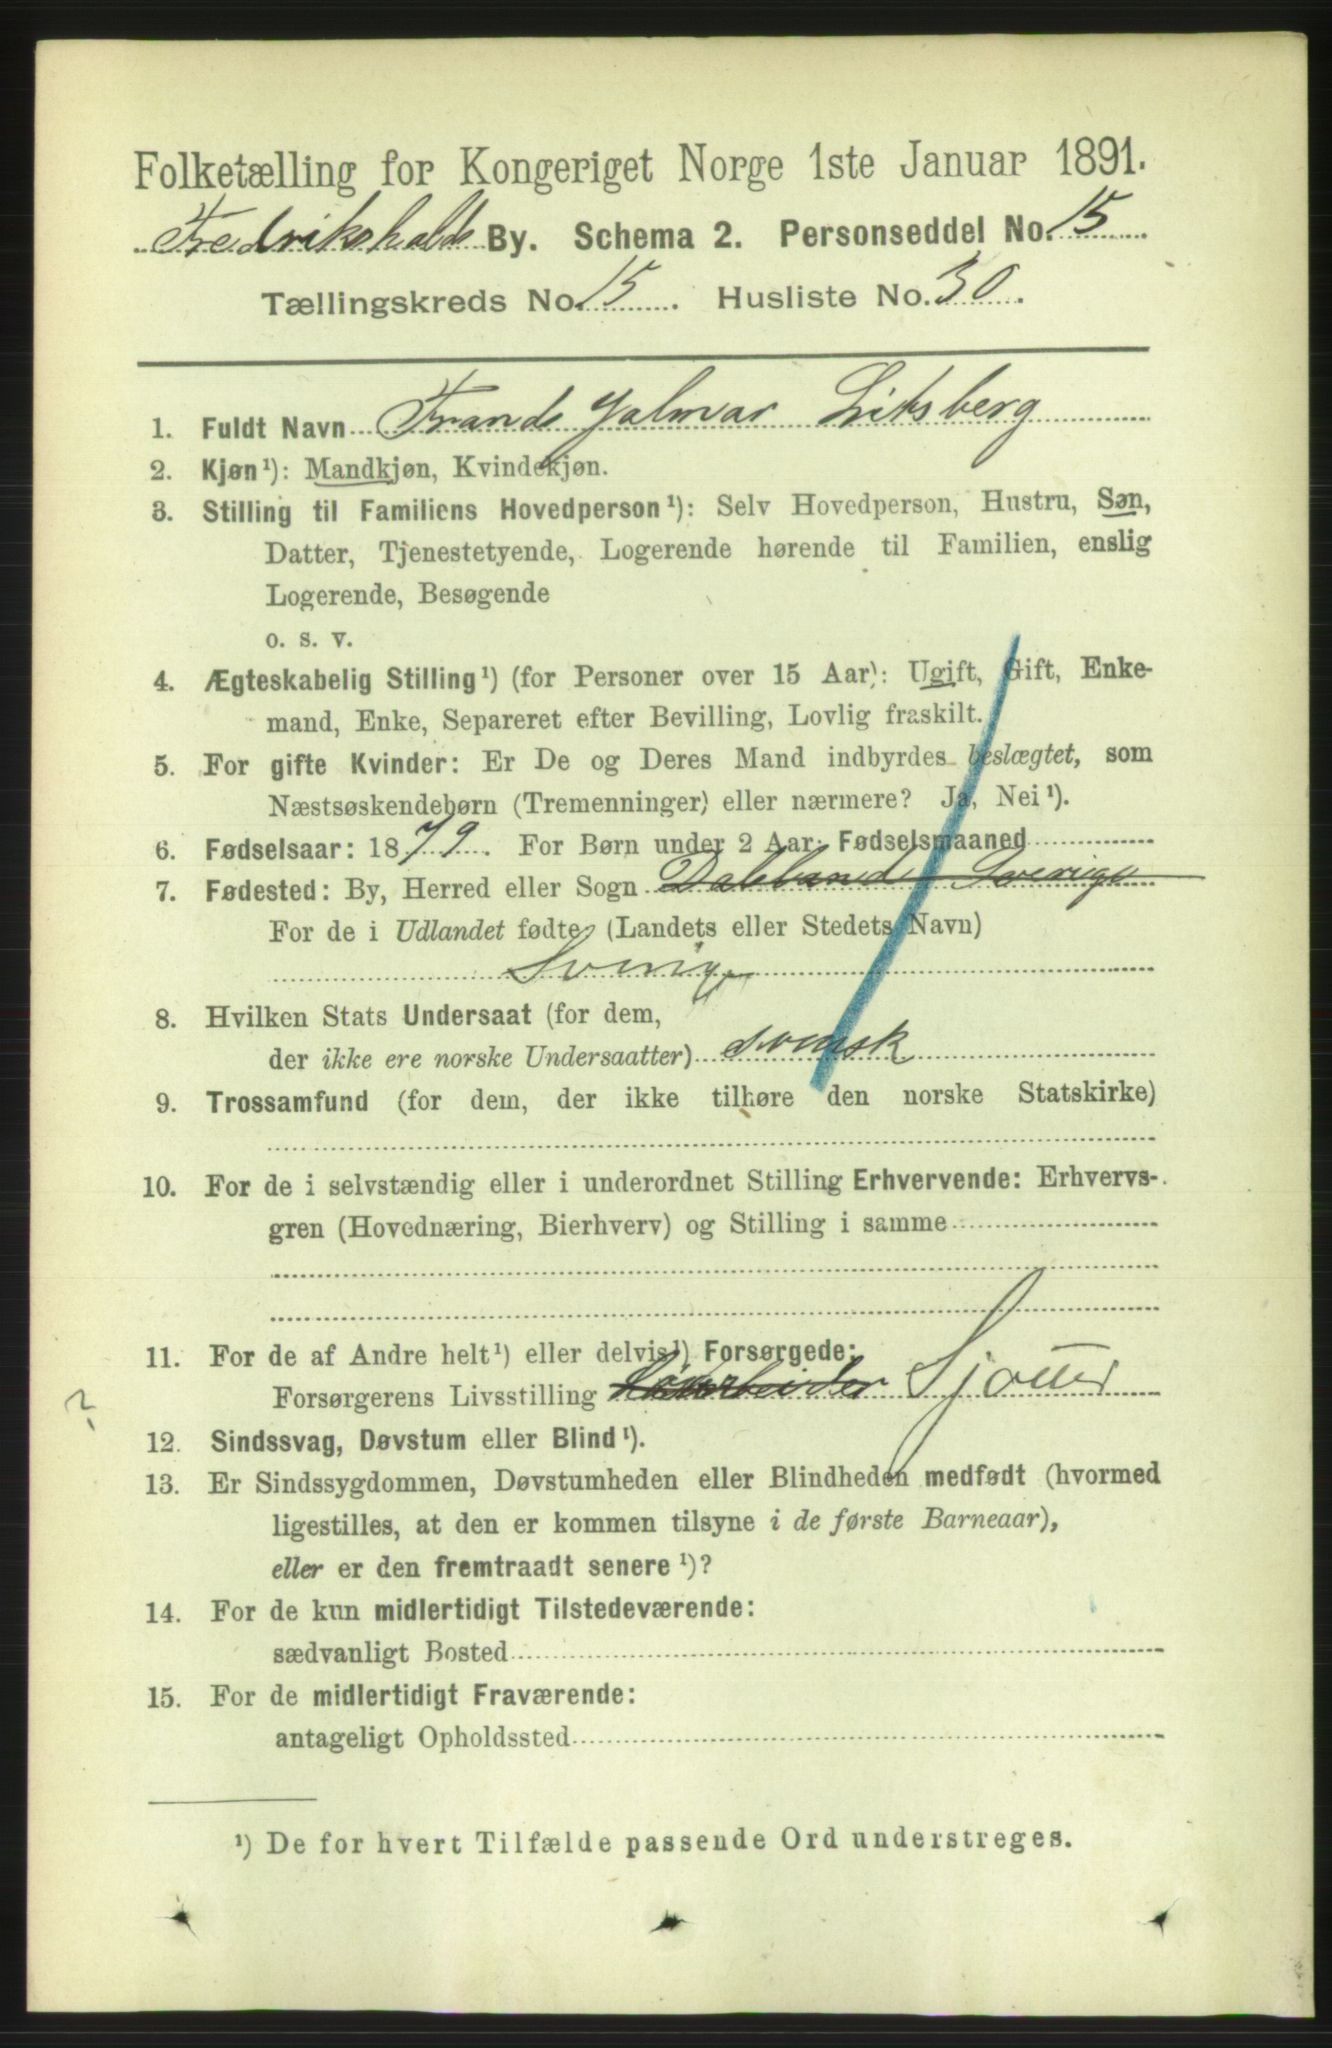 Folketælling for Kongeriget Norge 1ste Januar 1891.
Fredrikshalds By. Schema 2. Personseddel No. 15
Tællingskreds No. 15. Husliste No. 30.
1. Fuldt Navn Frands Hjalmar Litsberg
2. Kjøn ¹): Mandkjøn, Kvindekjøn.
3. Stilling til Familiens Hovedperson ¹): Selv Hovedperson, Hustru, Søn,
Datter, Tjenestetyende, Logerende hørende til Familien, enslig
Logerende, Besøgende
o. s. v.
4. Ægteskabelig Stilling ¹) (for Personer over 15 Aar): Ugift, Gift, Enke-
mand, Enke, Separeret efter Bevilling, Lovlig fraskilt.
5. For gifte Kvinder: Er De og Deres Mand indbyrdes beslægtet, som
Næstsøskendebørn (Tremenninger) eller nærmere? Ja, Nei ¹).
6. Fødselsaar: 1879. For Børn under 2 Aar: Fødselsmaaned
7. Fødested: By, Herred eller Sogn Dalsland Sverige
For de i Udlandet fødte (Landets eller Stedets Navn)
Sverige
8. Hvilken Stats Undersaat (for dem,
der ikke ere norske Undersaatter) svensk
9. Trossamfund (for dem, der ikke tilhøre den norske Statskirke)
10. For de i selvstændig eller i underordnet Stilling Erhvervende: Erhvervs-
gren (Hovednæring, Bierhverv) og Stilling i samme
11. For de af Andre helt ¹) eller delvis ¹) Forsørgede:
Forsørgerens Livsstilling
12. Sindssvag, Døvstum eller Blind ¹).
13. Er Sindssygdommen, Døvstumheden eller Blindheden medfødt (hvormed
ligestilles, at den er kommen tilsyne i de første Barneaar),
eller er den fremtraadt senere ¹)?
14. For de kun midlertidigt Tilstedeværende:
sædvanligt Bosted
15. For de midlertidigt Fraværende:
antageligt Opholdssted
¹) De for hvert Tilfælde passende Ord understreges.